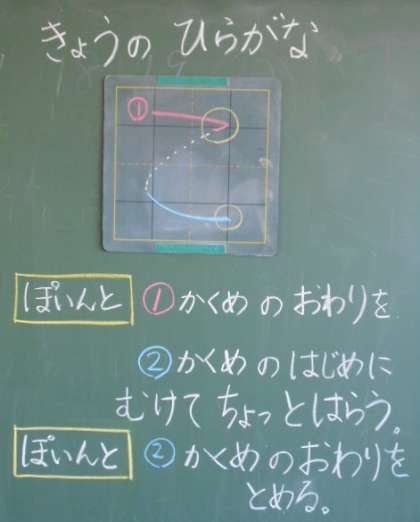 きょうの ひらがな
①
ぽいんと ①かくめ の おわりを
②かくめ の はじめに
むけて ちょっとはらう。
ぽいんと ②かくめ の おわりを
とめる。